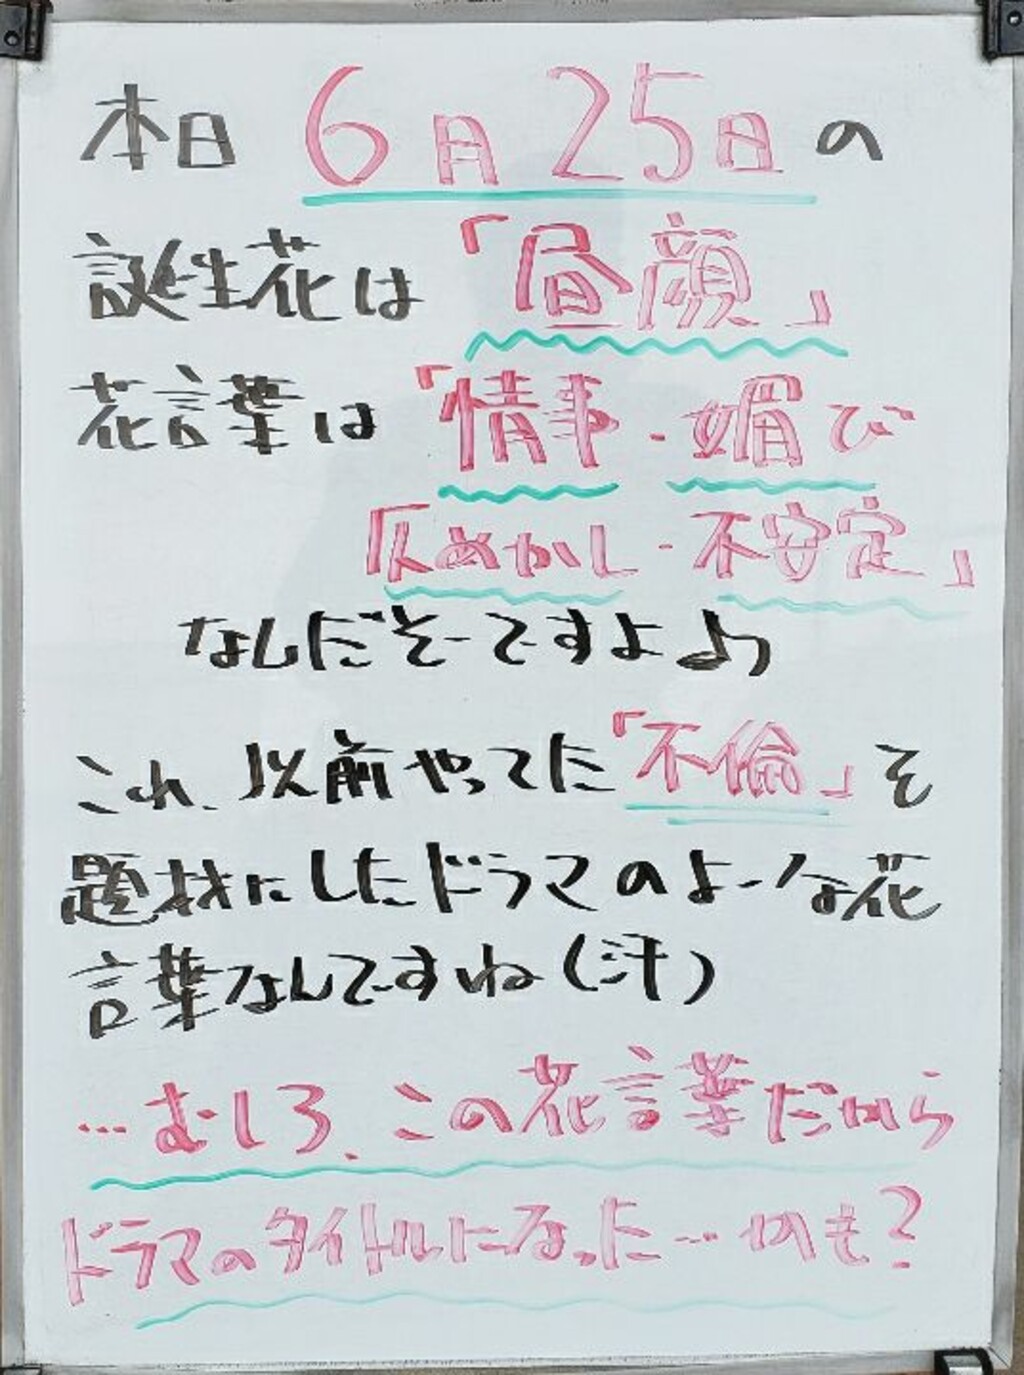 本日 6月25日の
誕生花は「昼顔」
花言葉は「情事・媚び
仄めかし・不安定」
なんだそーですよよう
これ、以前やってた「不倫」を
題材にしたドラマのよーな花
言葉なんですね(汗)
…むしろ、この花言葉だから
ドラマのタイトルになった…かも?